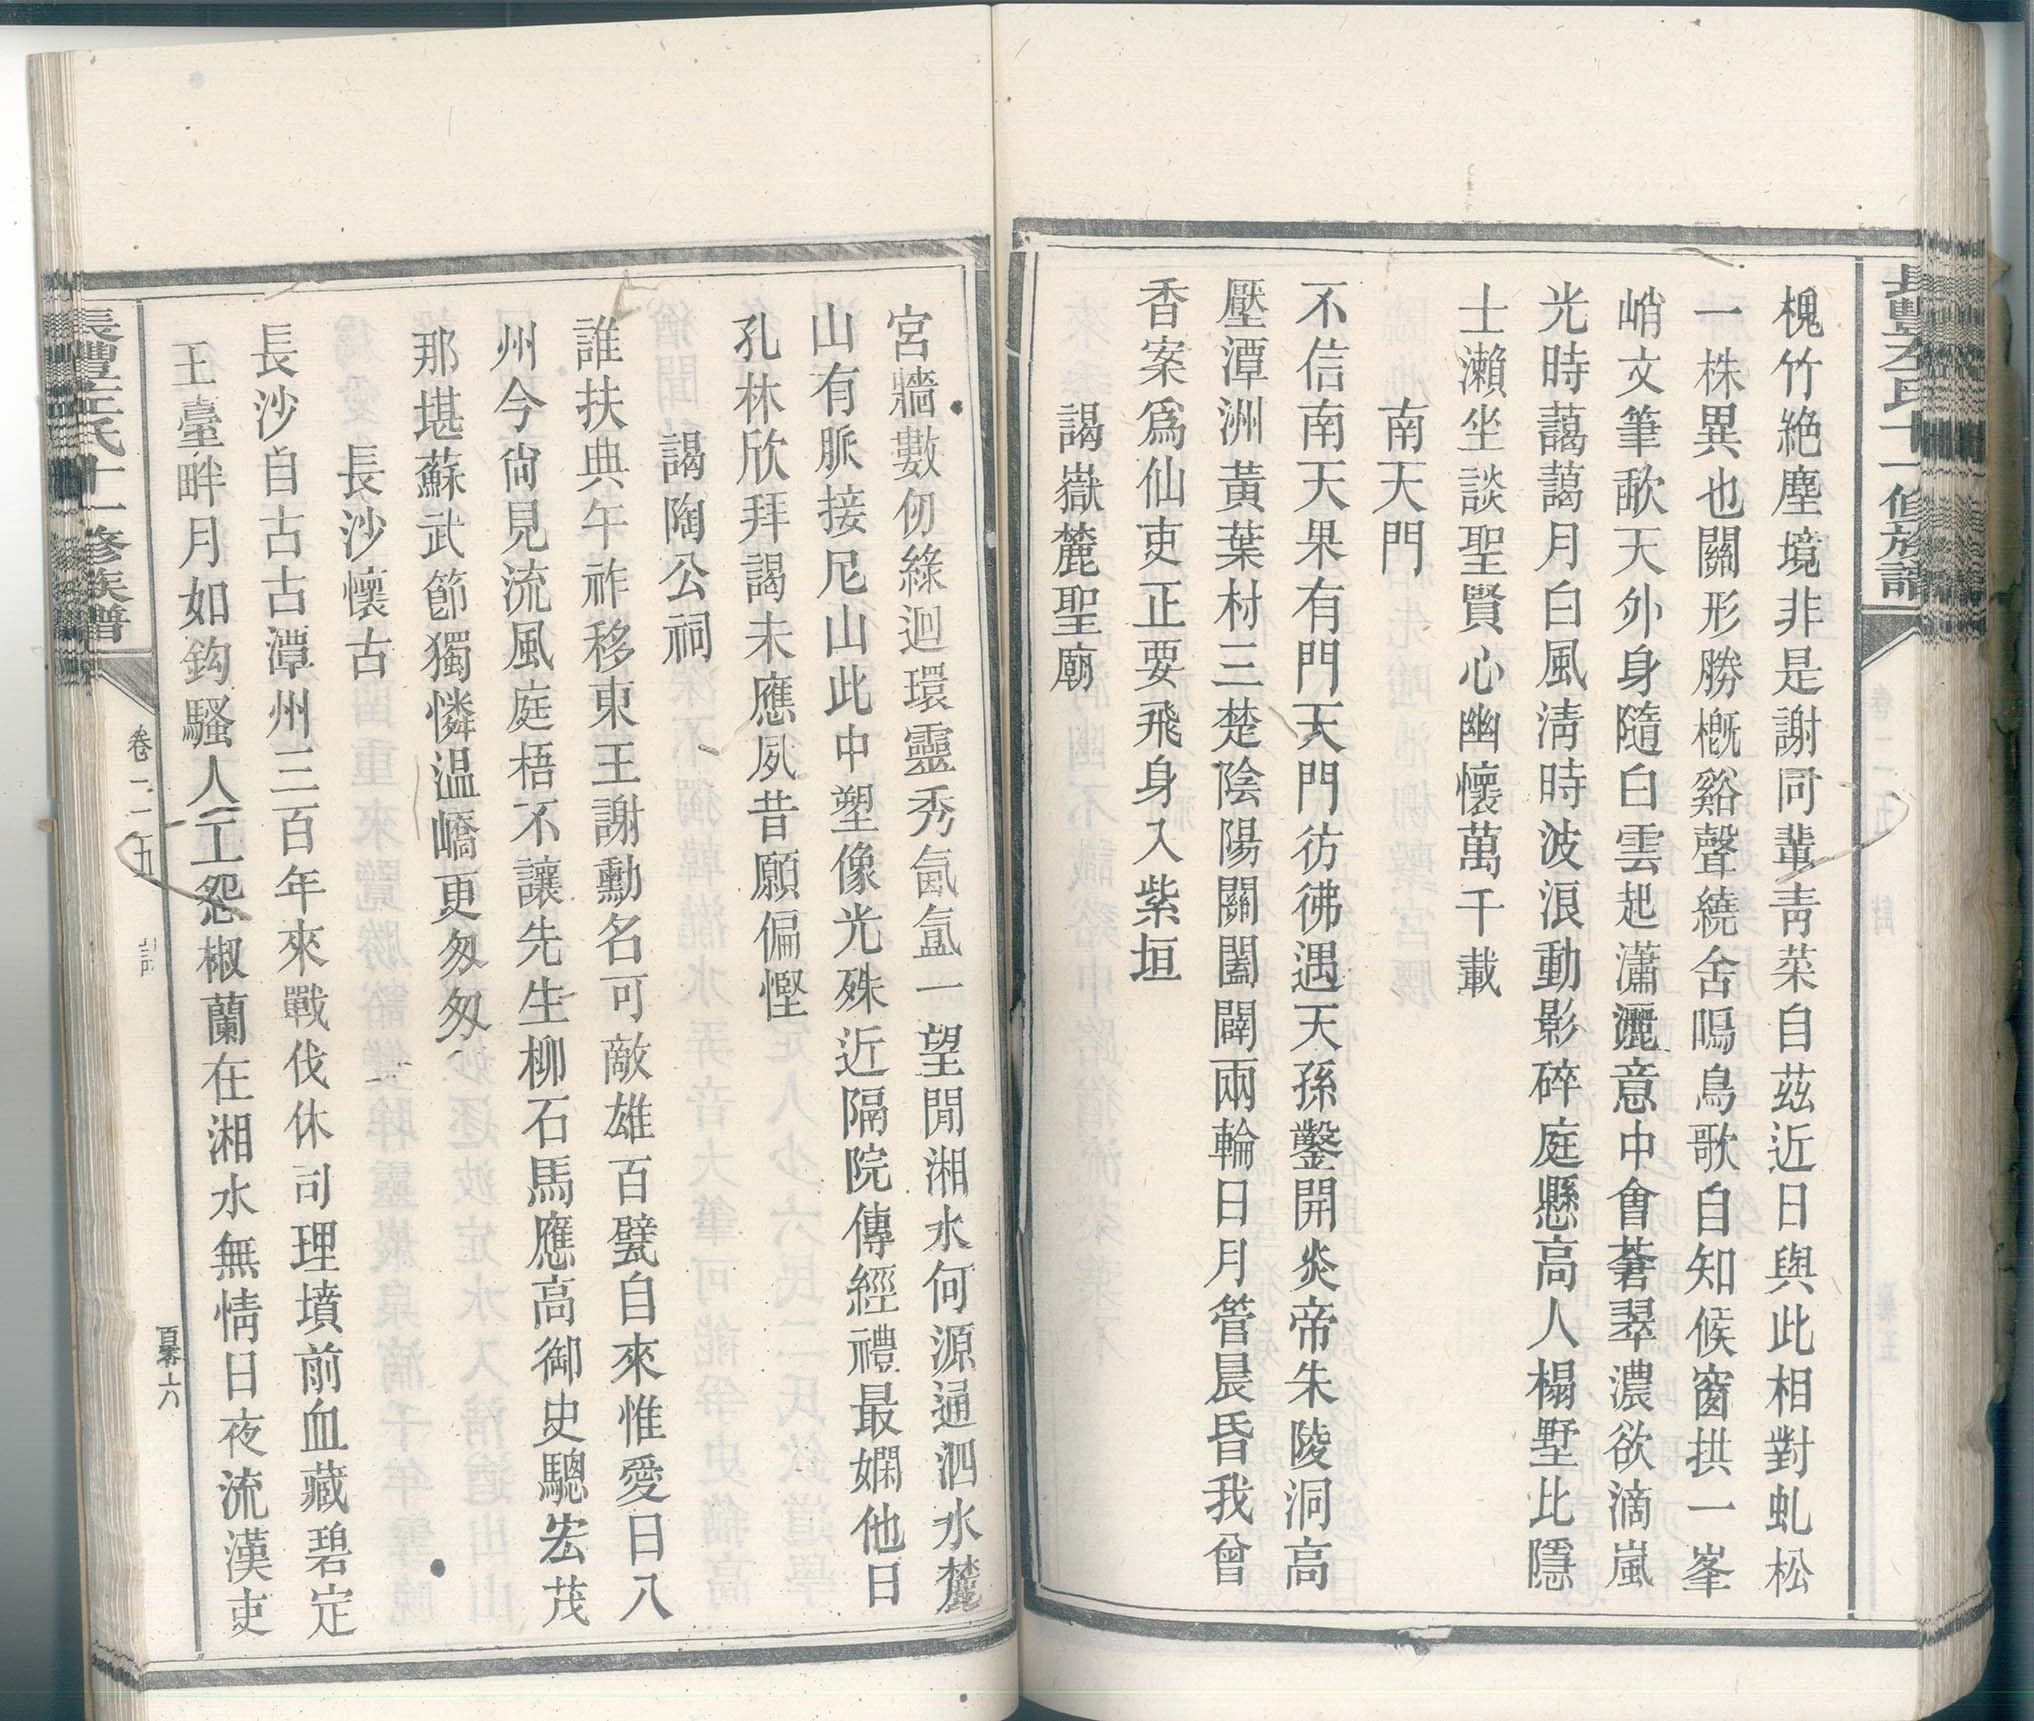 槐竹絶塵境非是謝同輩靑菜自茲近日與此相對虬松
一株異也關形勝槪谿聲繞舍鳴鳥歌自知候窗拱一峯
峭文筆歃天外身隨白雲起瀟灑意中會蒼翠濃欲滴嵐
光時藹藹月白風淸時波浪動影碎庭懸高人榻墅比隱
士瀨坐談聖賢心幽懷萬千載
南天門
不信南天果有門天門彷彿遇天孫鑿開炎帝朱陵洞高
壓潭洲黃葉村三楚陰陽關闔闢兩輪日月管晨昏我曾
香案爲仙吏正要飛身入紫垣
謁嶽麓聖廟
宮牆數仞綠迴環靈秀氤氳一望閒湘水何源通泗水麓
山有脈接尼山此中塑像光殊近隔院傳經禮最嫻他日
孔林欣拜謁未應夙昔願偏慳
謁陶公祠
誰扶典午祚移東王謝勳名可敵雄百甓自來惟愛日八
州今尙見流風庭梧不讓先生柳石馬應高御史驄宏茂
那堪蘇武節獨憐溫嶠更匆匆
長沙懷古
長沙自古古潭州三百年來戰伐休司理墳前血藏碧定
王臺畔月如鈎騷人工怨椒蘭在湘水無情日夜流漢吏
長豐左氏十一修族譜
卷二五
詩